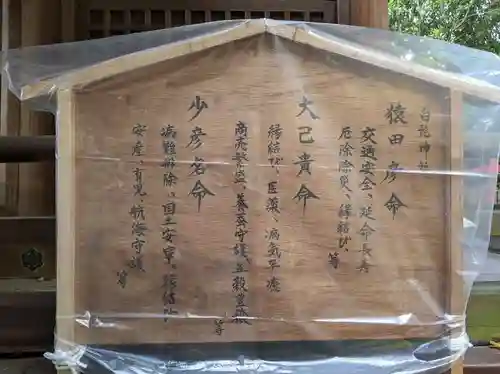 白龍神社
猿田彦命
交通安全、延命長寿
厄除除災、縁結び、等
大己貴命
縁結び、医薬、病気平癒
商売繁盛、養蚕守護、五穀豊穣
等
少彦名命
病難排除、国土安寧、縁結び
安産、育児、航海守護
等